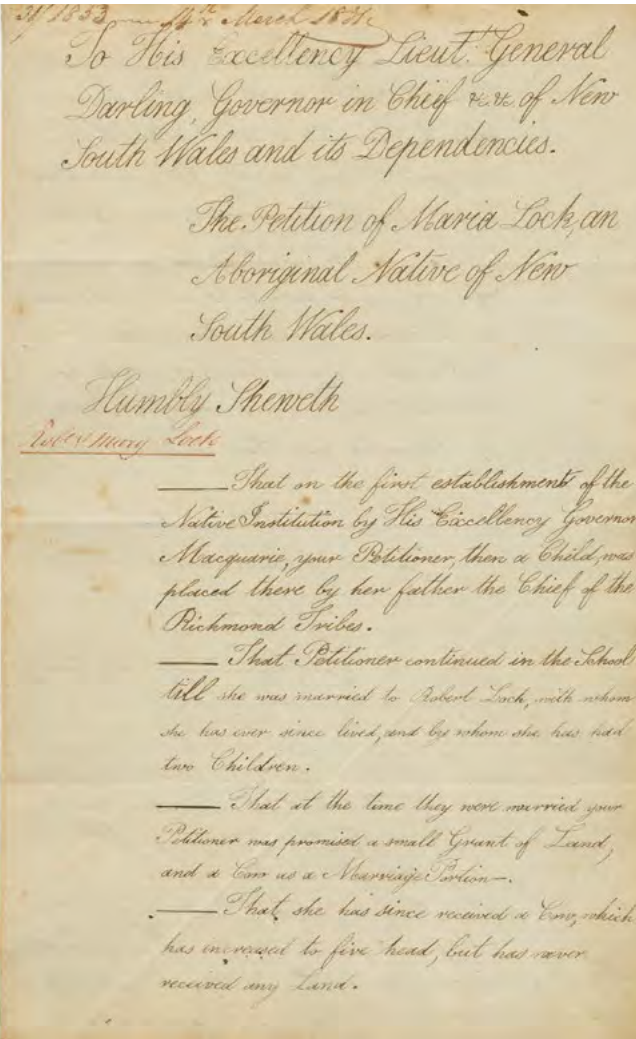 31/1853 14th March 1831
To His Excellency Lieut. General
Darling, Governor in Chief &c. &c. of New
South Wales and its Dependencies.
The Petition of Maria Lock, an
Aboriginal Native of New
South Wales.
Humbly Sheweth
Mary Lock
That on the first establishment of the
Native Institution by His Excellency Governor
Macquarie, your Petitioner, then a Child, was
placed there by her father the Chief of the
Richmond Tribes.
That Petitioner continued in the School
till she was married to Robert Lock, with whom
she has ever since lived, and by whom she has had
two Children.
That at the time they were married your
Petitioner was promised a small Grant of Land,
and a Cow as a Marriage Portion—.
That she has since received a Cow, which
has increased to five head, but has never
received any Land.